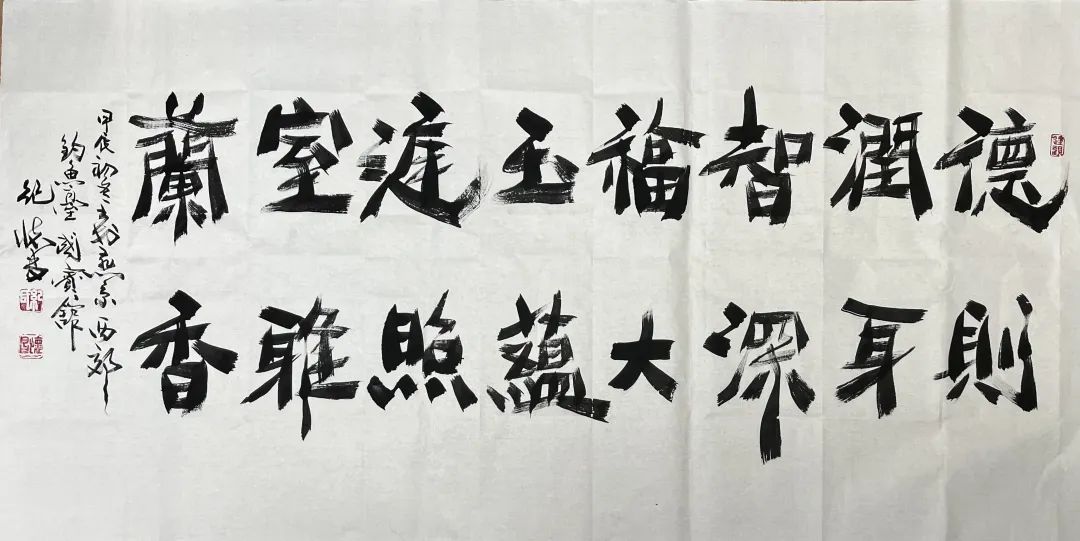 德則
潤身
智深
福大
玉蘊
涯照
室雅
蘭香
甲辰初冬書於燕京西郊
釣魚臺國賓館
紀懷昌